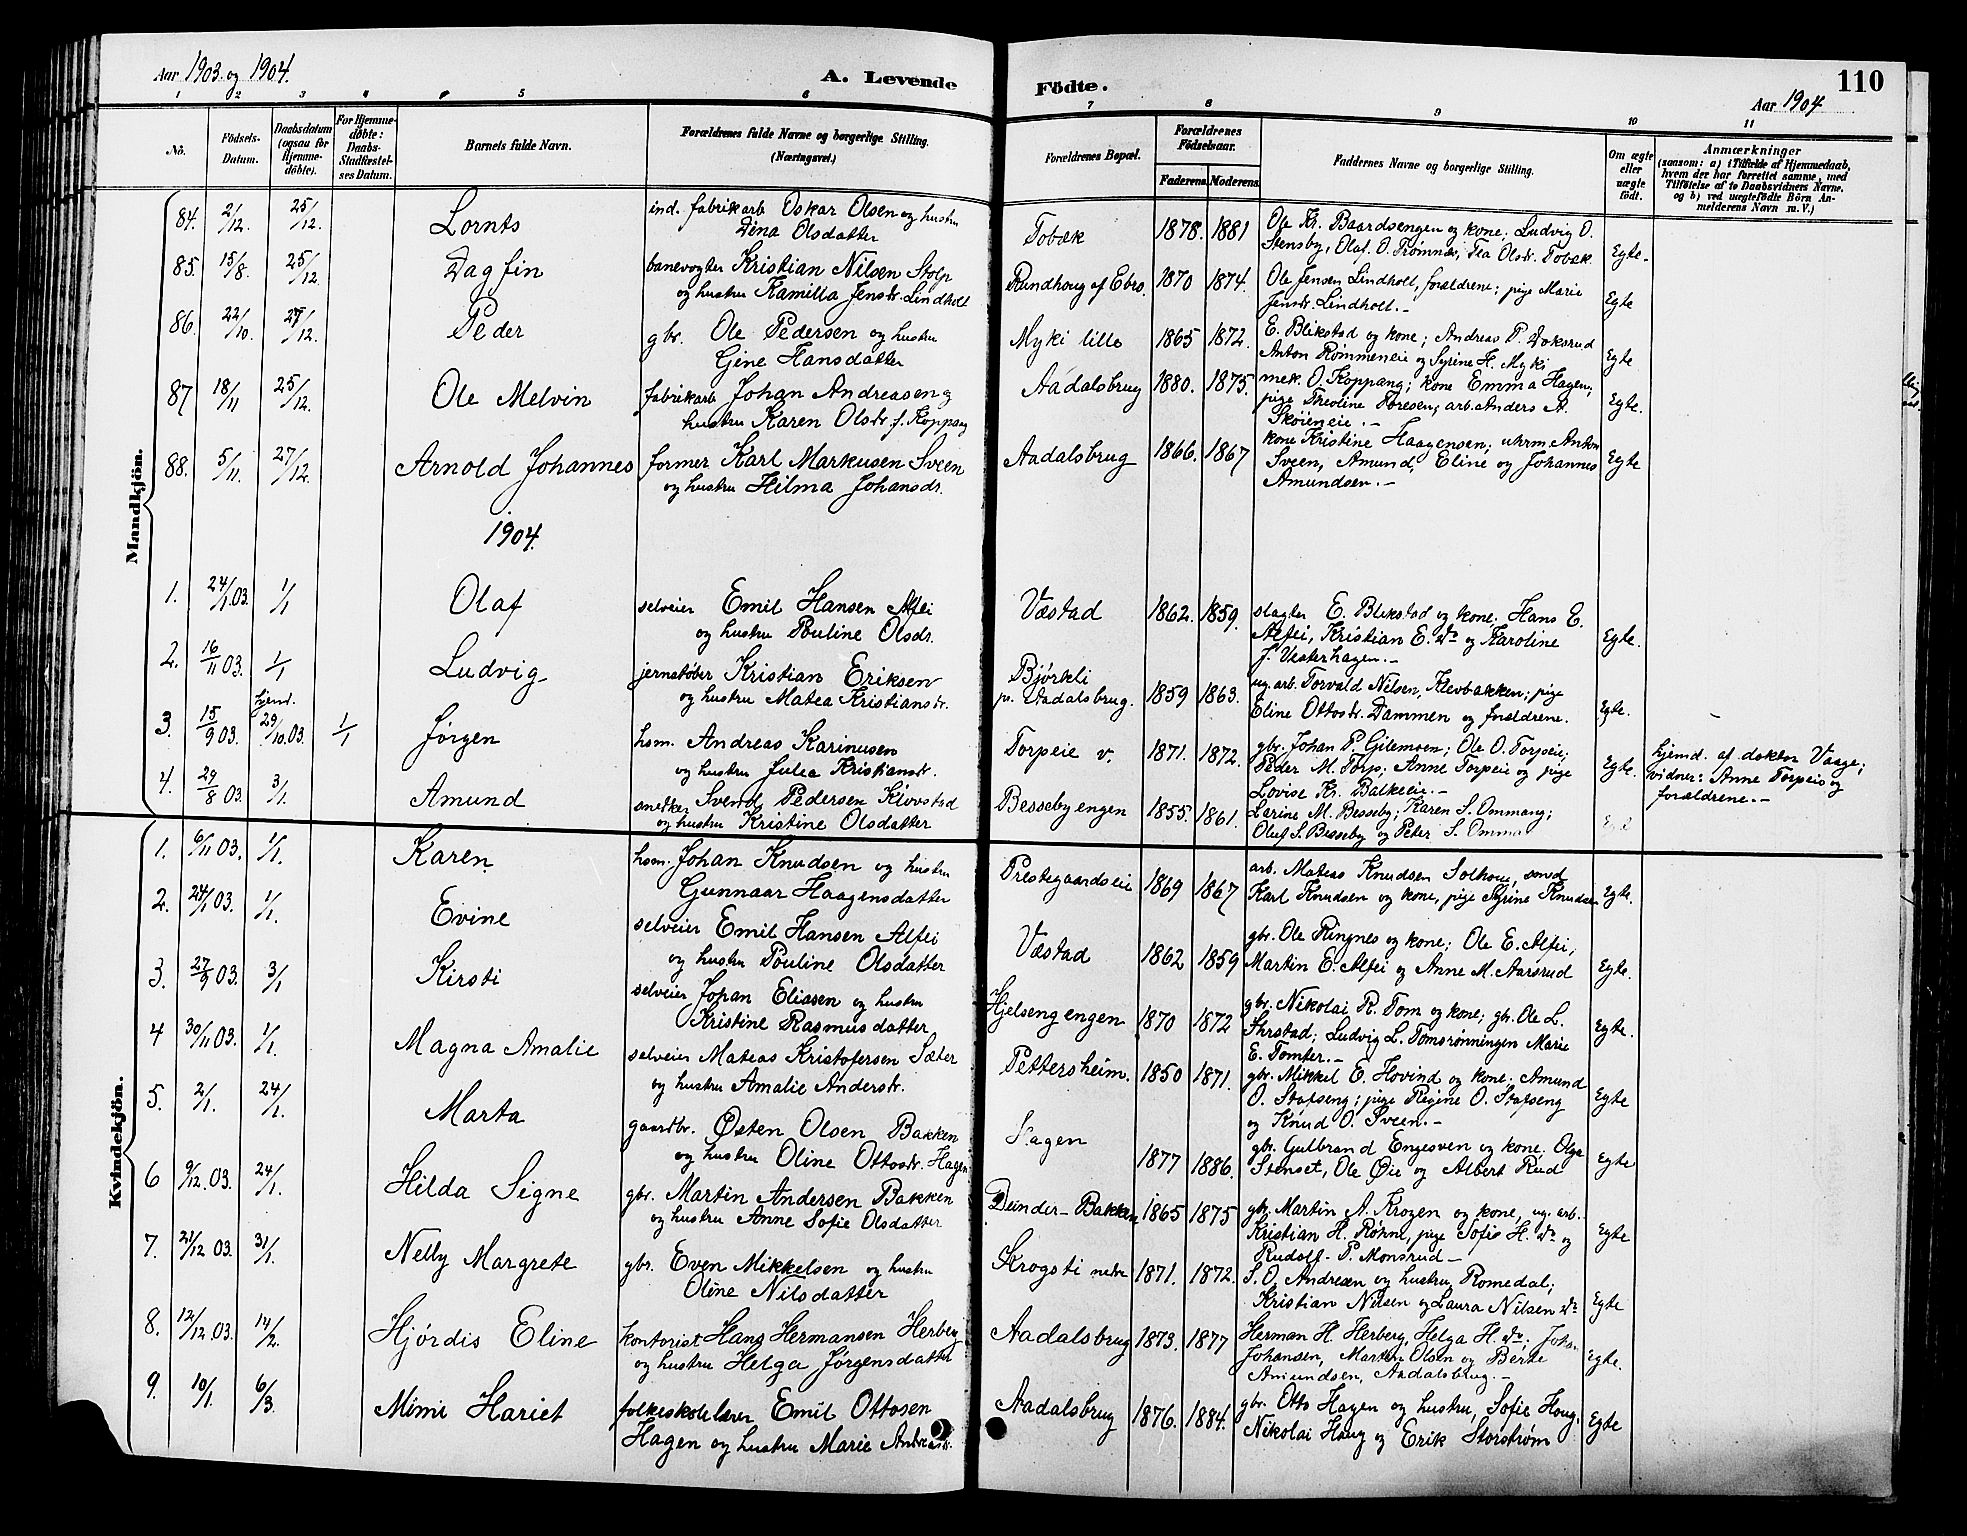 Aar 1903 og 1904.
A. Levende
Födte.
110
Aar 1904
1 2 3 4 5 6
7 8 9 10 11
No.
Födsels-Datum.
Daabsdatum (ogsaa for Hjemmedöbte).
For Hjemmedöbte: Daabs-Stadfæstelses Datum.
Barnets fulde Navn.
Forældrenes fulde Navne og borgerlige Stilling. (Næringsvei.)
Forældrenes Bopæl.
Forældrenes Födselsaar.
Faderens. Moderens.
Faddernes Navne og borgerlige Stilling.
Om ægte eller uægte födt.
Anmærkninger
(saasom: a) i Tilfælde af Hjemmedaab, hvem der har forrettet samme, med Tilföielse af to Daabsvidners Navne. og b) ved uægtefödte Börn Anmelderens Navn m. V.)
Mandkjön.
84. 2/12. 25/12. Lornts ind. fabrikarb Oskar Olsen og hustru
Dina Olsdatter
Tobæk 1878. 1881 Ole Kr. Baardsengen og kone; Ludvig O.
Stensby, Olaf O. Trømnes, Tea Olsdr. Tobæk. Egte.
85. 15/8. 25/12 Dagfin banevogter Kristian Nilsen Stolp
og hustru Kamilla Jensdr. Lindholt
Rundhoug af Ebro. 1870 1874. Ole Jensen Lindholt, forældrene; pige Marie
Jensdr. Lindholt.- Egte
86. 22/10. 27/12. Peder gbr. Ole Pedersen og hustru
Gine Hansdatter
Myki lille 1865 1872. E. Blikstad og kone; Andreas P. Doksrud
Anton Rømmeneie og Syrine H. Myki Egte
87 18/11 25/12. Ole Melvin fabrikarb Johan Andreasen og
hustru Karen Olsdr. f. Koppang
Aadalsbrug 1880. 1875. mek. O. Koppang; kone Emma Hagen;
pige Theoline Toresen; arb. Anders A.
Skøieneie.- Egte.
88. 5/11. 27/12. Arnold Johannes former Karl Markusen Sveen
og hustru Hilma Johansdr.
Aadalsbrug 1866. 1867 kone Kristine Haagensen; uhrm. Anton
Sveen, Amund, Eline og Johannes
Amundsen.- Egte
1904.
1. 24/1.03. 1/1 Olaf selveier Emil Hansen Alfei
og hustru Pouline Olsdr.
Væstad 1862. 1859. slagter E. Blikstad og kone; Hans E.
Alfei, Kristian E. do og Karoline
J. Vesterhagen.- Egte.
2. 16/11 03. 1/1 Ludvig jernstøber Kristian Eriksen
og hustru Matea Kristiansdr.
Bjørkli
pr. Aadalsbrug. 1859 1863. ug. arb. Torvald Nilsen, Klevbakken; pige
Eline Ottosdr. Dammen og forældrene. Egte.
3. 15/9 03. hjemd. 29/10.03. 1/1 Jørgen hsm. Andreas Karinusen
og hustru Julia Kristiansdr.
Torpeie v. 1871. 1872. gbr. Johan P. Gilemoen; Ole O. Torpeie;
Peder M. Torp; Anne Torpeie og pige
Lovise Kr. Balkeeie.- Egte. hjemd. af doktor Vaage;
vidner: Anne Torpeie og
forældrene.-
4. 29/8 03. 3/1. Amund snedker Svend Pedersen Kløvstad
og hustru Kristine Olsdatter
Bessebyengen 1855. 1861. Larine M. Besseby; Karen S. Ommang;
Oluf S. Besseby og Peter S. Omma
Kvindekjön.
1. 6/11 03. 1/1. Karen hsm. Johan Knudsen og hustru
Gunnaar Haagensdatter
Prestegaardseie 1869 1867 arb. Mateas Knudsen Solhoug, smed
Karl Knudsen og kone, pige Syrine Knudsen Egte.
2. 24/1 03. 1/1. Evine selveier Emil Hansen Alfei
og hustru Pouline Olsdatter
Væstad 1862 1859 gbr. Ole Ringnes og kone; Ole E. Alfei,
Martin E. Alfei og Anne M. Aarsrud Egte.
3. 27/9 03. 3/1 Kirsti selveier Johan Eliasen og hustru
Kristine Rasmusdatter
Hjelsengengen 1870 1872 gbr. Nikolai R. Tom og kone; gbr. Ole L.
Ludvig L. Tomsrønningen Marie
E. Tomter.- Egte.
4 30/11 03. 1/1. Magna Amalie selveier Mateas Kristofersen Sæter
og hustru Amalie Andersdr.
Pettersheim. 1850 1871. gbr. Mikkel E. Hovind og kone; Amund
O. Stafseng; pige Regine O. Stafseng
og Knud O. Sveen.- Egte
5. 2/1. 24/1. Marta gaardbr. Østen Olsen Bakken
og hustru Oline Ottosdr. Hagen
Hagen 1877 1886. gbr. Gulbrand Engesven og kone; Olga
Stenset, Ole Øie og Albert Rud Egte
6 9/12.03. 24/1. Hilda Signe gbr. Martin Andersen Bakken
og hustru Anne Sofie Olsdatter
Deinder-Bakken 1865 1875 gbr. Martin A. Krogen og kone, ug. arb.
Kristian H. Røhne, pige Sofie H. do og
Rudolf P. Monsrud- Egte
7. 21/12 03. 31/1. Nelly Margrete gbr. Even Mikkelsen og hustru
Oline Nilsdatter
Krogsti nedre 1871. 1872. S. O. Andreæn og hustru, Romedal;
Kristian Nilsen og Laura Nilsen do Egte
8. 12/12.03. 14/2. Hjórdis Eline kontorist Hans Hermansen Herberg
og hustru Helga Jørgensdatter
Aadalsbrug 1873. 1877 Herman H. Herberg, Helga H. do; Johs.
Johansen, Martin Olsen og Berte
Amundsen, Aadalsbrug.- Egte.
9. 10/1. 6/3. Mimi Hariet folkeskolelærer Emil Ottosen
Hagen og hustru Marie Andreasdr.
Aadalsbrug 1876. 1884. gbr. Otto Hagen og hustru, Sofie Houg,
Nikolai Houg og Erik Storstrøm Egte